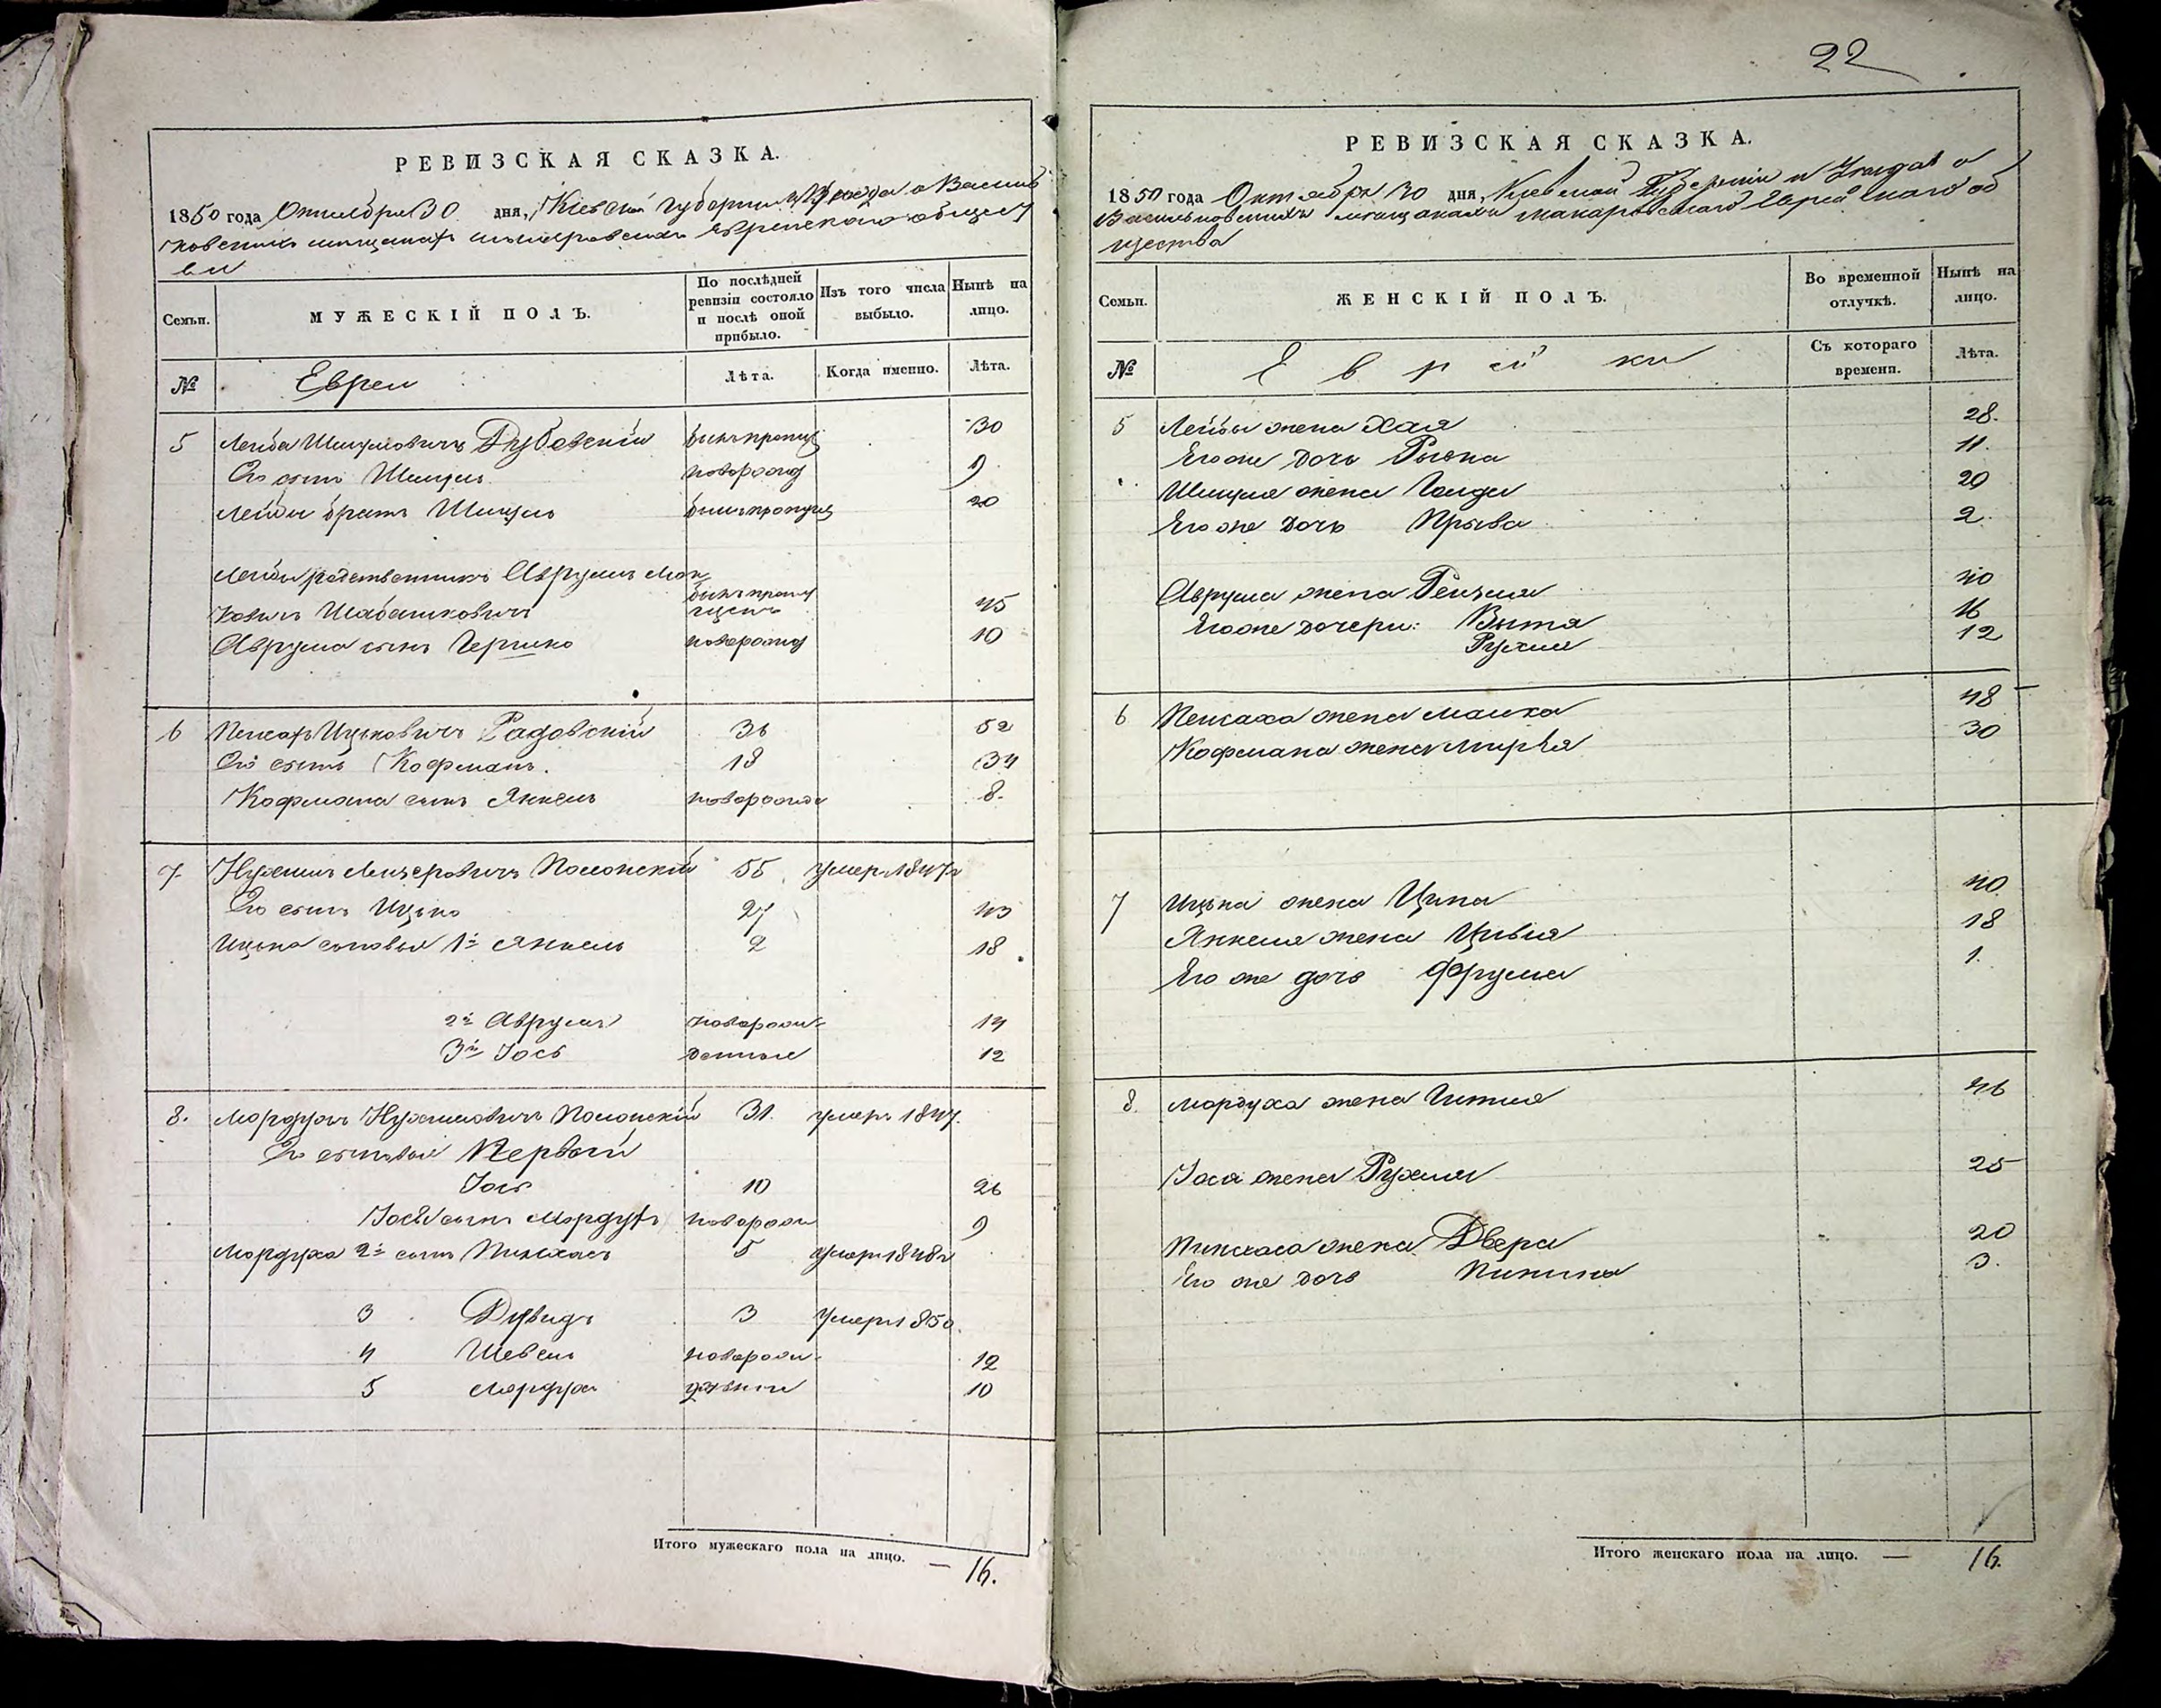 РЕВИЗСКАЯ СКАЗКА.
1850 года Октября 30 дня, Кіевской губерніи и уѣзда о Василь
ковскихъ мѣщанахъ макаровскаго Еврейскаго общест
ва
Семьи.
МУЖЕСКІЙ ПОЛЪ.
По послѣдней ревизіи состояло и послѣ оной прибыло.
Изъ того числа выбыло.
Нынѣ на лицо.
№
Евреи
Лѣта.
Когда именно.
Лѣта.
5 Лейба Шмулевичъ Дубовскій 30
Его сынъ Шмуль новорожд 9
Лейбы братъ Шмуль 20
Лейбы родственникъ Аврумъ Мош
ковичъ Шабашковичъ 45
Аврума сынъ Гершко новорожд 10
6 Пейсахъ Ицьковичъ Радовскій 36 52
Его сынъ Кофманъ. 18 34
Кофмана сынъ Янкель новорожде 8.
7. Нухимъ Лейзеровичъ Полонскій 55 умеръ 1847г
Его сынъ Ицько 27 43
Ицька сыновья 1й Янкель 2 18
2й Аврумъ новорож- 14
3й Іось денные 12
8. Мордухъ Нухимовичъ Полонскій 31. умеръ 1847.
Его сыновья Первый
Іось 10 26
Іося сынъ Мордухъ новорож 9
Мордуха 2й сынъ Пинхасъ 5 умеръ 1848г
3 Дувидъ 3 умеръ 1850.
4 Шевель новорож- 12
5 10
Итого мужескаго пола на лицо. — 16.
22
РЕВИЗСКАЯ СКАЗКА.
1850 года Октября 30 дня, Кіевской Губерніи и Уѣзда о
Васильковскихъ мѣщанахъ макаровскаго Еврейскаго об
щества
Семьи.
ЖЕНСКІЙ ПОЛЪ.
Во временной отлучкѣ.
Нынѣ на лицо.
№
Еврейки
Съ котораго времени.
Лѣта.
5 Лейбы жена Хая 28.
Его же дочь 11.
Шмуля жена Голда 20
Его же дочь 2.
Аврума жена 40
Его же дочери: 16
Рухля 12
6 Пейсаха жена Малка 48
Кофмана жена 30
7 Ицька жена Ципа 40
Янкеля жена Цивья 18
Его же дочь Фрума 1.
8. Мордуха жена Гитля 46
Іося жена Рухля 25
Пинхаса жена Двера 20
Его же дочь 3.
Итого женскаго пола на лицо. — 16.